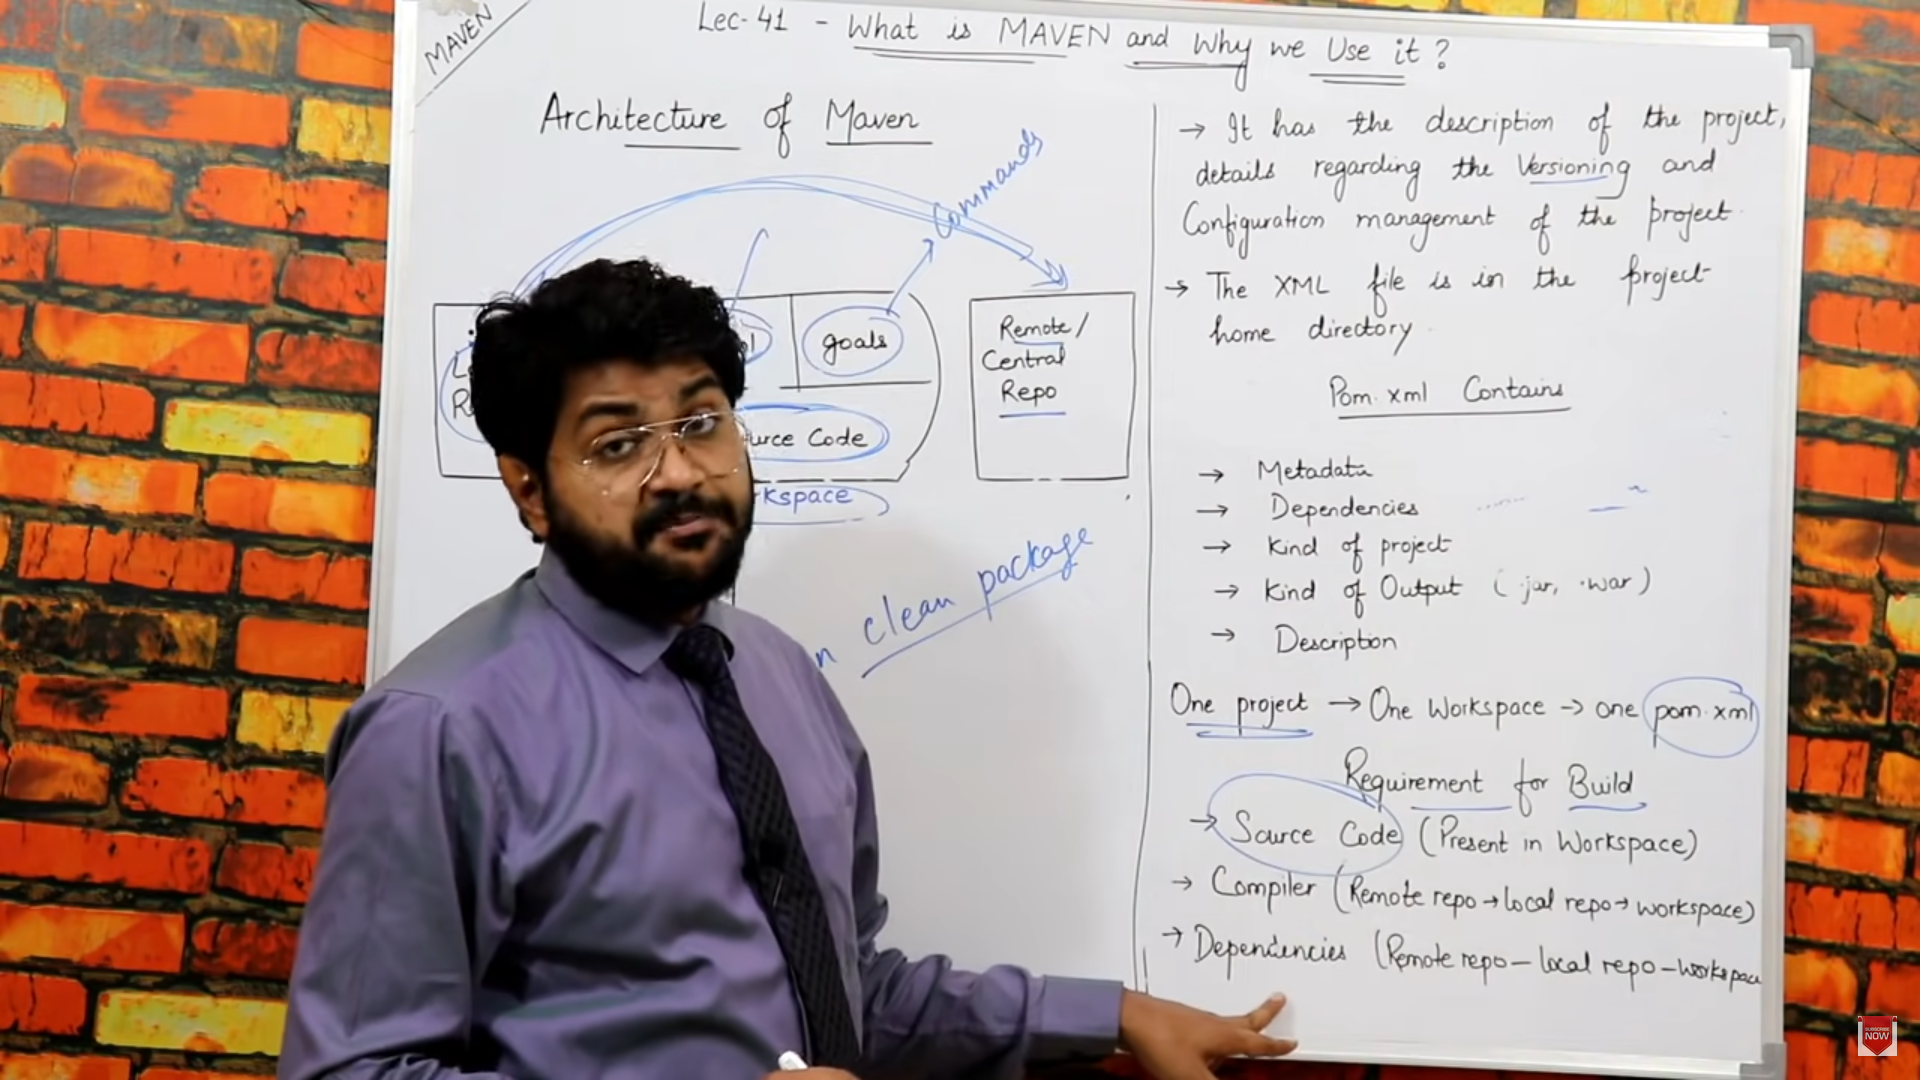 MAVEN
Lec-41 - What is MAVEN and Why we Use it?
Architecture of Maven
Commands
goals
Code
Remote/
Central
Repo
clean package
→ It has the description of the project,
details regarding the Versioning and
Configuration management of the project.
→ The XML file is in the project
home directory.
Pom.xml Contains
→ Metadata
→ Dependencies
→ Kind of project
→ Kind of Output (.jar, .war)
→ Description
One project → One Workspace → one pom.xml
Requirement for Build
→ Source Code (Present in Workspace)
→ Compiler (Remote repo → local repo → workspace)
→ Dependencies (Remote repo – local repo – workspace
SUBSCRIBE
NOW